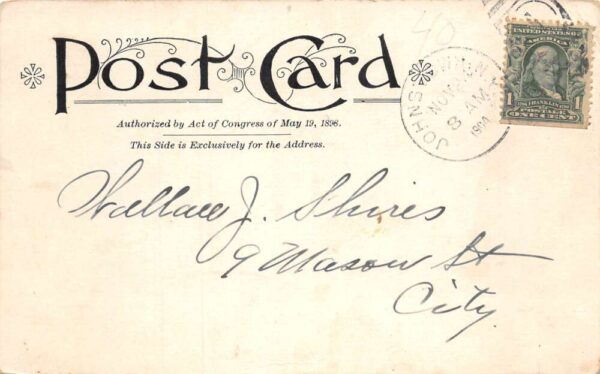 Post Card
Authorized by Act of Congress of May 19, 1898.
This Side is Exclusively for the Address.
JOHNSTOWN, N.Y.
8 AM
UNITED STATES OF
AMERICA
1 FRANKLIN 1
POSTAGE
ONE CENT
Wallace J. Shires
9 Mason St
City.